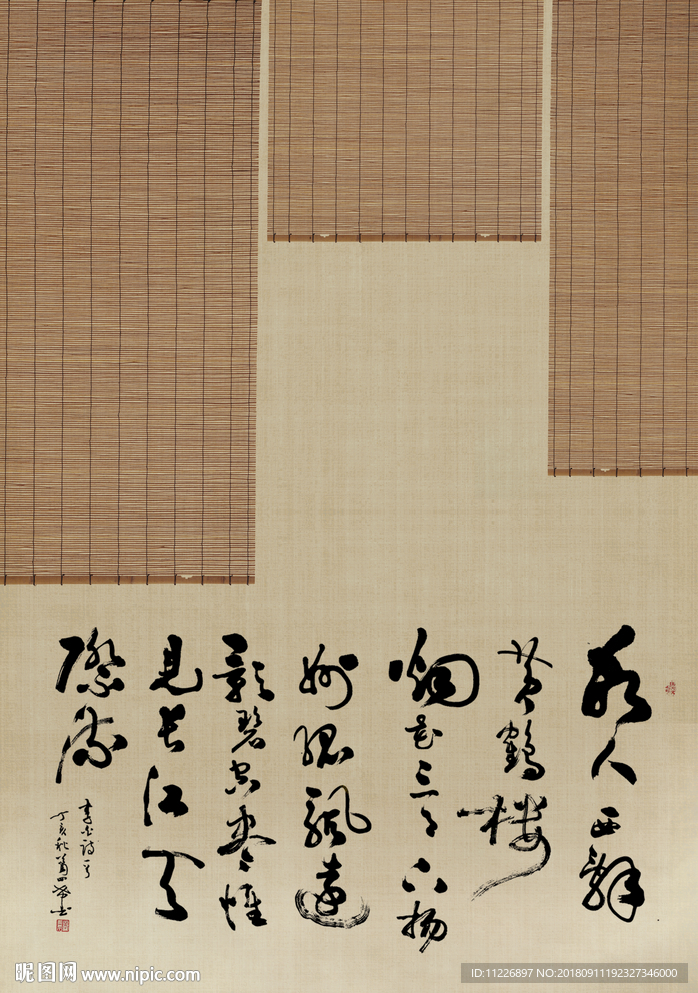 故人西辭
黄鶴樓
烟花三月下揚
州孤帆遠
影碧空盡惟
見長江天
際流
李白詩
丁亥秋
昵图网 www.nipic.com
ID:11226897 NO:20180911192327346000